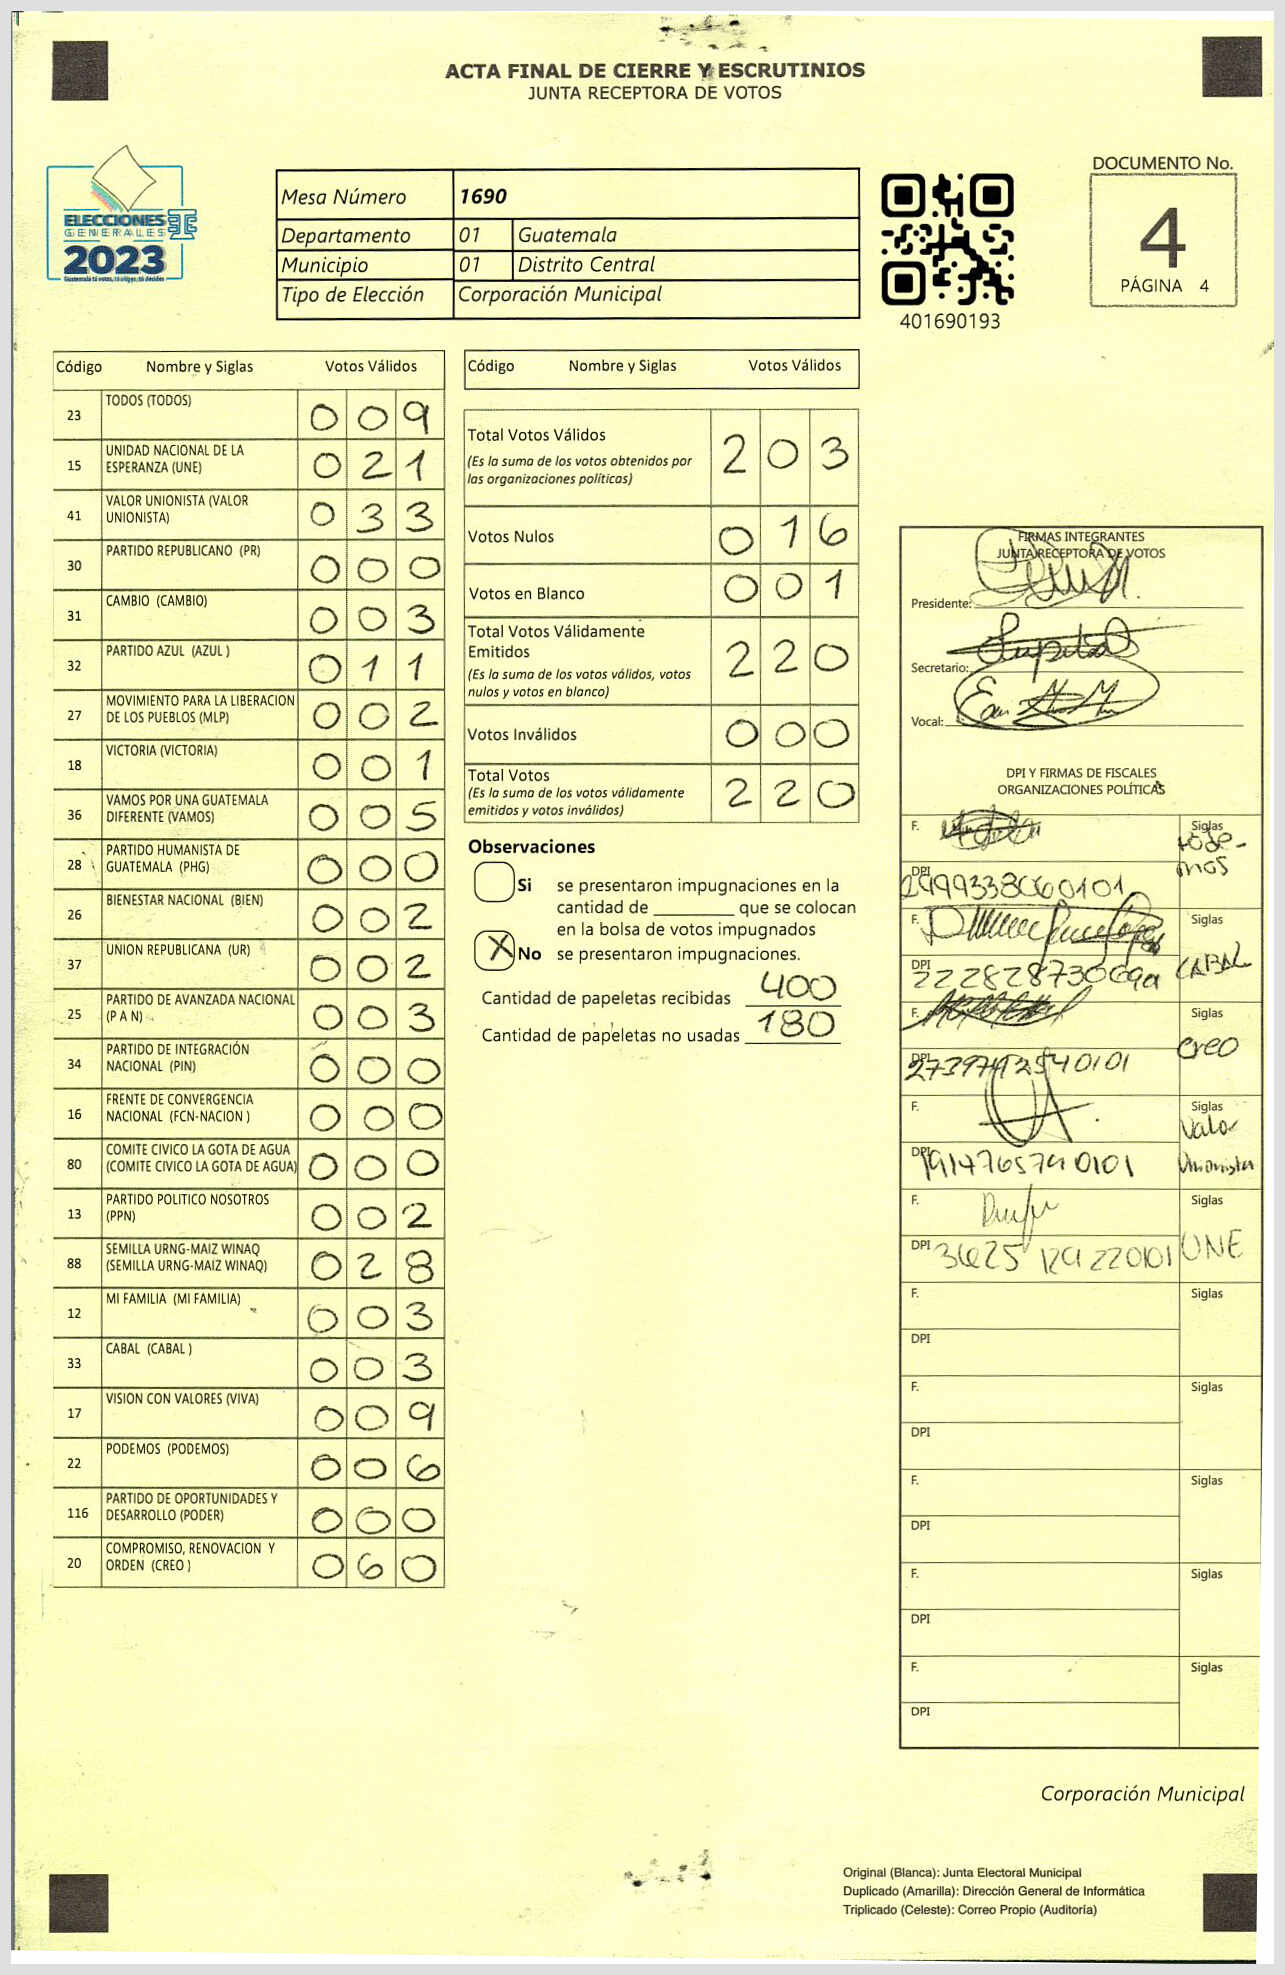 ACTA FINAL DE CIERRE Y ESCRUTINIOS
JUNTA RECEPTORA DE VOTOS
ELECCIONES
GENERALES
2023
Guatemala tú votas, tú eliges, tú decides
Mesa Número 1690
Departamento 01 Guatemala
Municipio 01 Distrito Central
Tipo de Elección Corporación Municipal
401690193
DOCUMENTO No.
4
PÁGINA 4
Código Nombre y Siglas Votos Válidos
23 TODOS (TODOS) 0 0 9
15 UNIDAD NACIONAL DE LA ESPERANZA (UNE) 0 2 1
41 VALOR UNIONISTA (VALOR UNIONISTA) 0 3 3
30 PARTIDO REPUBLICANO (PR) 0 0 0
31 CAMBIO (CAMBIO) 0 0 3
32 PARTIDO AZUL (AZUL ) 0 1 1
27 MOVIMIENTO PARA LA LIBERACION DE LOS PUEBLOS (MLP) 0 0 2
18 VICTORIA (VICTORIA) 0 0 1
36 VAMOS POR UNA GUATEMALA DIFERENTE (VAMOS) 0 0 5
28 PARTIDO HUMANISTA DE GUATEMALA (PHG) 0 0 0
26 BIENESTAR NACIONAL (BIEN) 0 0 2
37 UNION REPUBLICANA (UR) 0 0 2
25 PARTIDO DE AVANZADA NACIONAL (P A N) 0 0 3
34 PARTIDO DE INTEGRACIÓN NACIONAL (PIN) 0 0 0
16 FRENTE DE CONVERGENCIA NACIONAL (FCN-NACION ) 0 0 0
80 COMITE CIVICO LA GOTA DE AGUA (COMITE CIVICO LA GOTA DE AGUA) 0 0 0
13 PARTIDO POLITICO NOSOTROS (PPN) 0 0 2
88 SEMILLA URNG-MAIZ WINAQ (SEMILLA URNG-MAIZ WINAQ) 0 2 8
12 MI FAMILIA (MI FAMILIA) 0 0 3
33 CABAL (CABAL ) 0 0 3
17 VISION CON VALORES (VIVA) 0 0 9
22 PODEMOS (PODEMOS) 0 0 6
116 PARTIDO DE OPORTUNIDADES Y DESARROLLO (PODER) 0 0 0
20 COMPROMISO, RENOVACION Y ORDEN (CREO ) 0 6 0
Código Nombre y Siglas Votos Válidos
Total Votos Válidos 2 0 3
(Es la suma de los votos obtenidos por
las organizaciones políticas)
Votos Nulos 0 1 6
Votos en Blanco 0 0 1
Total Votos Válidamente
Emitidos 2 2 0
(Es la suma de los votos válidos, votos
nulos y votos en blanco)
Votos Inválidos 0 0 0
Total Votos 2 2 0
(Es la suma de los votos válidamente
emitidos y votos inválidos)
Observaciones
Si se presentaron impugnaciones en la
cantidad de ________ que se colocan
en la bolsa de votos impugnados
X No se presentaron impugnaciones.
Cantidad de papeletas recibidas 400
Cantidad de papeletas no usadas 180
FIRMAS INTEGRANTES
JUNTA RECEPTORA DE VOTOS
Presidente:
Secretario:
Vocal:
DPI Y FIRMAS DE FISCALES
ORGANIZACIONES POLÍTICAS
F. Siglas
DPI
F. Siglas
DPI CABAL
F. Siglas
DPI creo
F. Siglas
Valor
DPI Unionista
F. Siglas
DPI UNE
F. Siglas
DPI
F. Siglas
DPI
F. Siglas
DPI
F. Siglas
DPI
F. Siglas
DPI
Corporación Municipal
Original (Blanca): Junta Electoral Municipal
Duplicado (Amarilla): Dirección General de Informática
Triplicado (Celeste): Correo Propio (Auditoría)